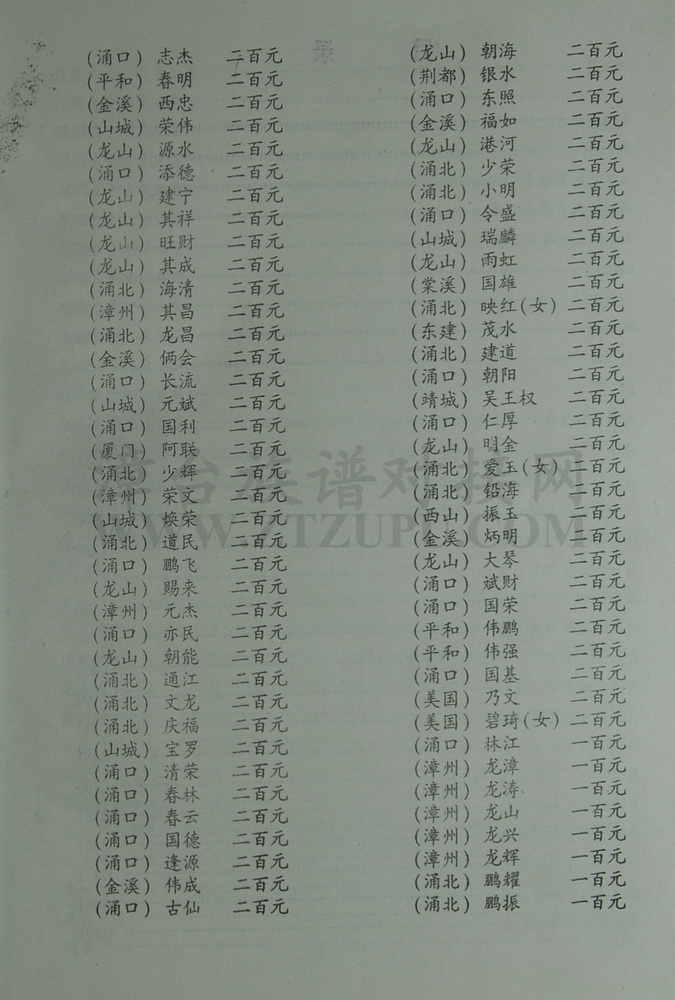 (涌口) 志杰 二百元
(平和) 春明 二百元
(金溪) 西忠 二百元
(山城) 荣伟 二百元
(龙山) 源水 二百元
(涌口) 添德 二百元
(龙山) 建宁 二百元
(龙山) 其祥 二百元
(龙山) 旺财 二百元
(龙山) 其成 二百元
(涌北) 海清 二百元
(漳州) 其昌 二百元
(涌北) 龙昌 二百元
(金溪) 俩会 二百元
(涌口) 长流 二百元
(山城) 元斌 二百元
(涌口) 国利 二百元
(厦门) 阿联 二百元
(涌北) 少辉 二百元
(漳州) 荣文 二百元
(山城) 焕荣 二百元
(涌北) 道民 二百元
(涌口) 鹏飞 二百元
(龙山) 赐来 二百元
(漳州) 元杰 二百元
(涌口) 亦民 二百元
(龙山) 朝能 二百元
(涌北) 通江 二百元
(涌北) 文龙 二百元
(涌北) 庆福 二百元
(山城) 宝罗 二百元
(涌口) 清荣 二百元
(涌口) 春林 二百元
(涌口) 春云 二百元
(涌口) 国德 二百元
(涌口) 逢源 二百元
(金溪) 伟成 二百元
(涌口) 古仙 二百元
(龙山) 朝海 二百元
(荆都) 银水 二百元
(涌口) 东照 二百元
(金溪) 福如 二百元
(龙山) 港河 二百元
(涌北) 少荣 二百元
(涌北) 小明 二百元
(涌口) 令盛 二百元
(山城) 瑞麟 二百元
(龙山) 雨虹 二百元
(棠溪) 国雄 二百元
(涌北) 映红(女) 二百元
(东建) 茂水 二百元
(涌北) 建道 二百元
(涌口) 朝阳 二百元
(靖城) 吴王权 二百元
(涌口) 仁厚 二百元
(龙山) 明金 二百元
(涌北) 爱玉(女) 二百元
(涌北) 铅海 二百元
(西山) 振玉 二百元
(金溪) 炳明 二百元
(龙山) 大琴 二百元
(涌口) 斌财 二百元
(涌口) 国荣 二百元
(平和) 伟鹏 二百元
(平和) 伟强 二百元
(涌口) 国基 二百元
(美国) 乃文 二百元
(美国) 碧琦(女) 二百元
(涌口) 林江 一百元
(漳州) 龙漳 一百元
(漳州) 龙涛 一百元
(漳州) 龙山 一百元
(漳州) 龙兴 一百元
(漳州) 龙辉 一百元
(涌北) 鹏耀 一百元
(涌北) 鹏振 一百元